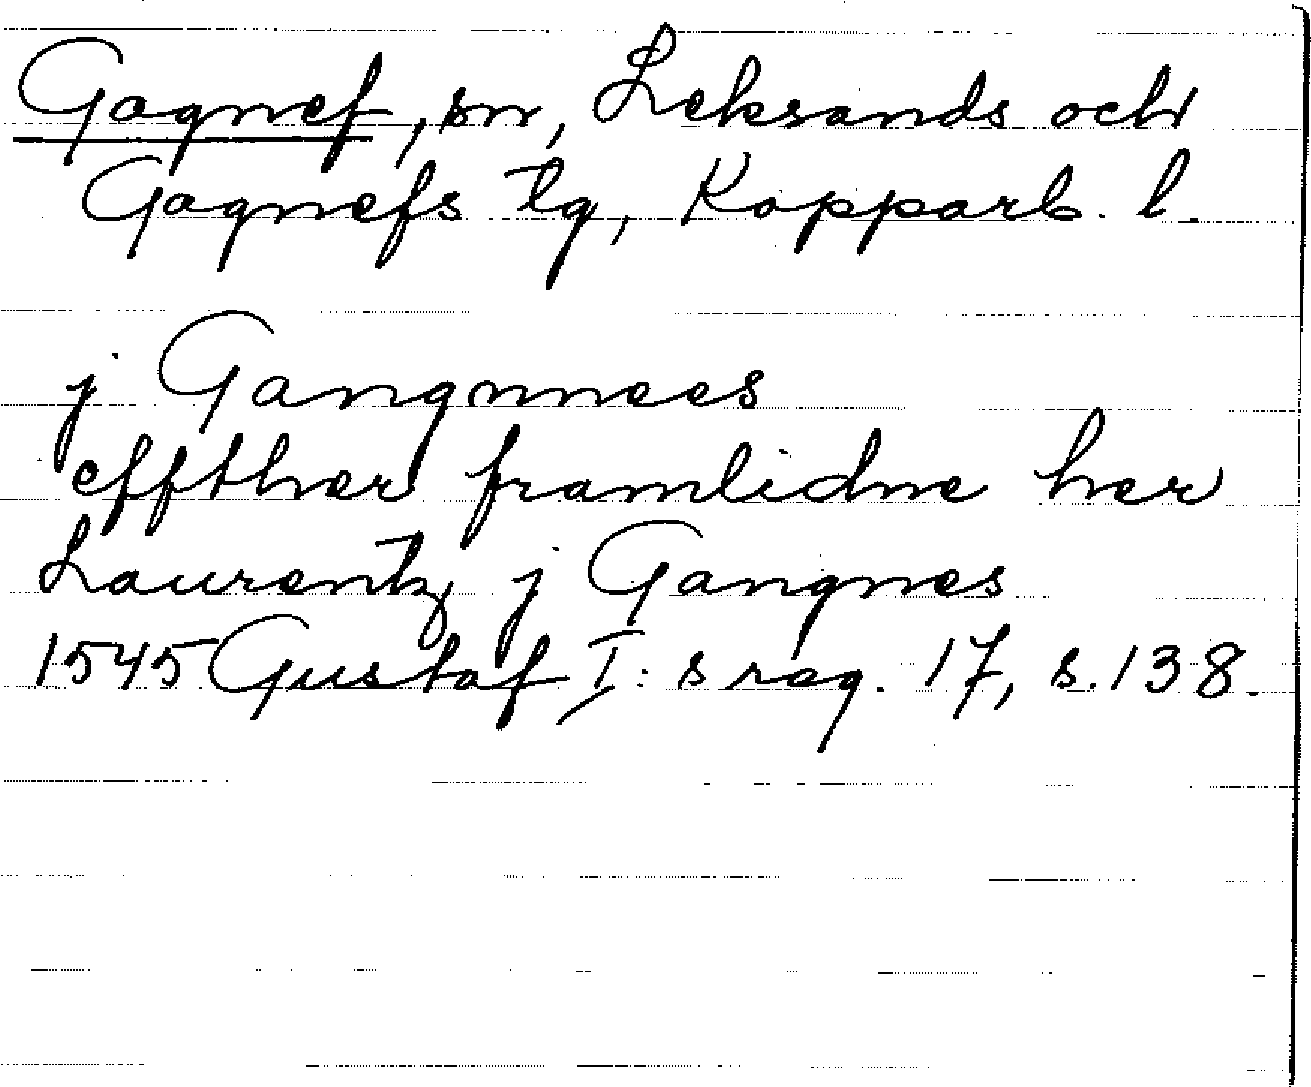 Gagnef, sn, Leksands och
Gagnefs tg, Kopparb. l.
j Gangnnees
effther framlidne her
Laurentz j Gangnes
1545 Gustaf I:s reg. 17, s. 138.